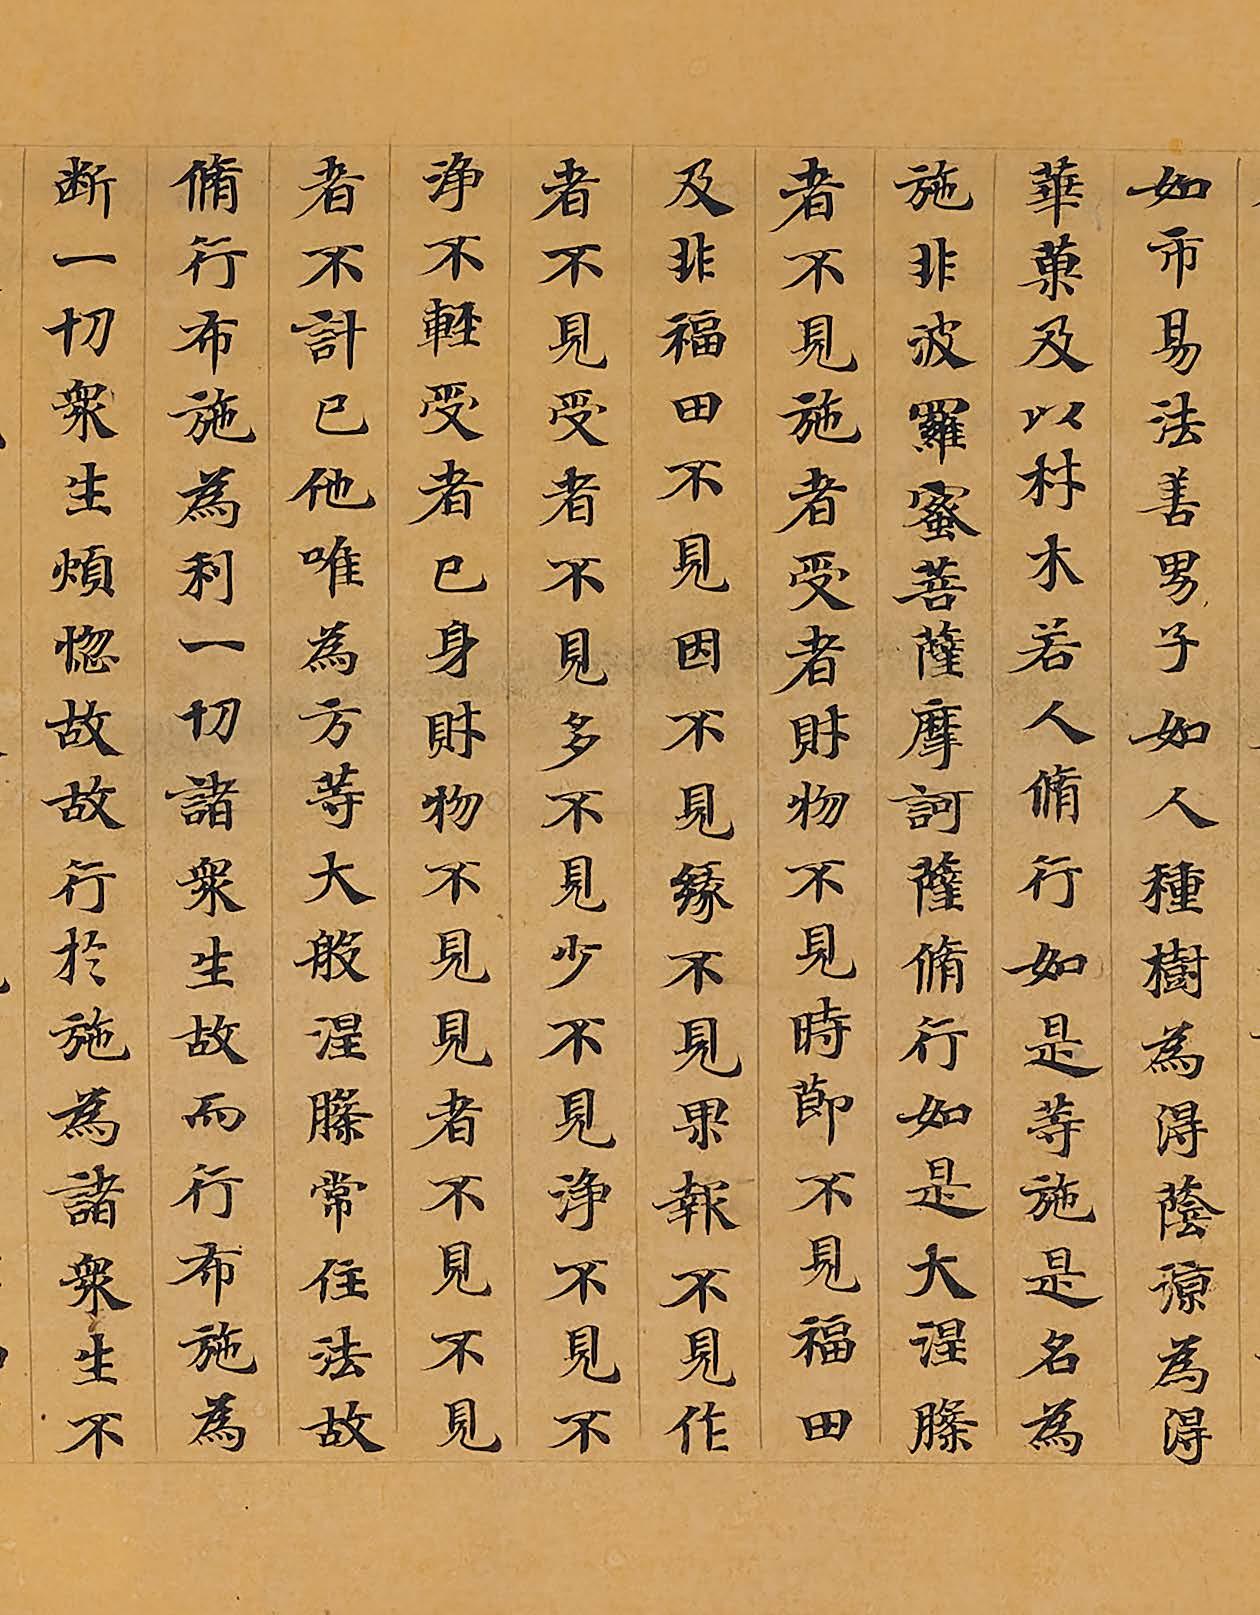 如市易法善男子如人種樹為得蔭涼為得
華菓及以材木若人脩行如是等施是名為
施非波羅蜜菩薩摩訶薩脩行如是大涅槃
者不見施者受者財物不見時節不見福田
及非福田不見因不見緣不見果報不見作
者不見受者不見多不見少不見淨不見不
淨不輕受者己身財物不見見者不見不見
者不計己他唯為方等大般涅槃常住法故
脩行布施為利一切諸眾生故而行布施為
断一切眾生煩惚故故行於施為諸眾生不